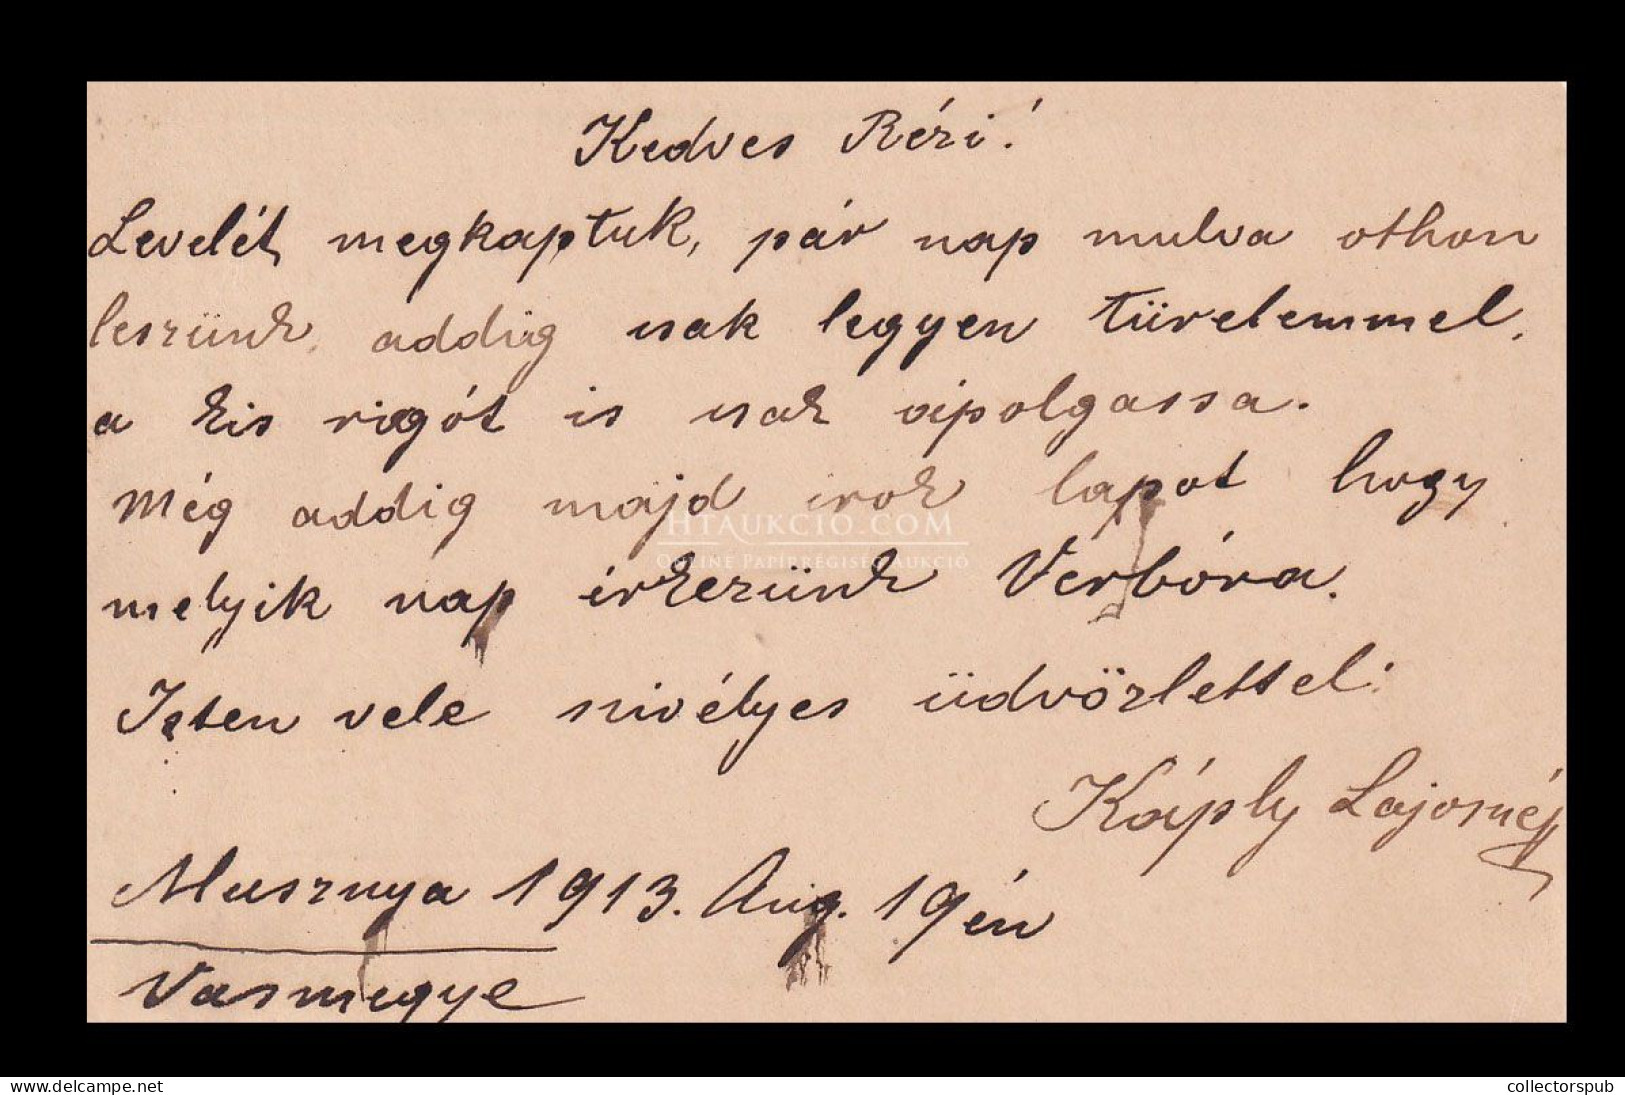 Kedves Rézi!
Levelét megkaptuk, pár nap mulva othon
leszünk, addig csak legyen türelemmel,
a kis rigót is csak ápolgassa.
Még addig majd irok lapot hogy
melyik nap érkezünk Verbóra.
Isten vele szivélyes üdvözlettel:
Káply Lajosné
Musznya 1913. Aug. 19én
Vasmegye
HTAUKCIO.COM
ONLINE PAPÍRRÉGISÉG AUKCIÓ
www.delcampe.net
collectorspub